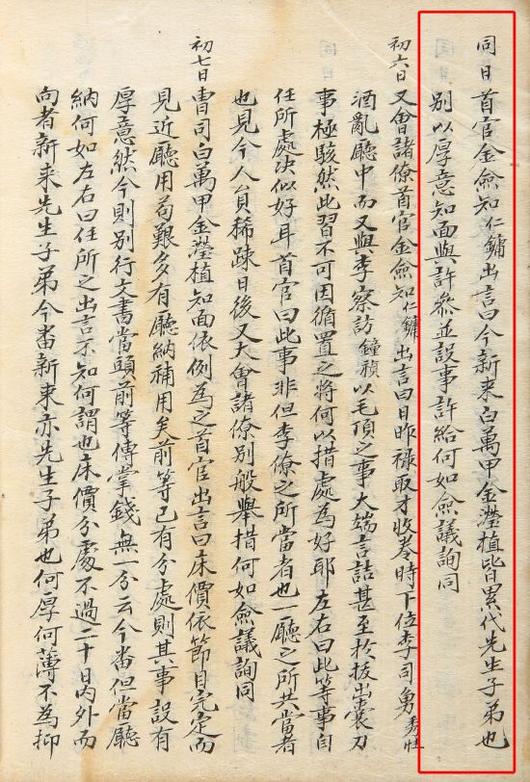 同日首官金僉知仁鏞出言曰今新来白萬甲金瀅植皆累代先生子弟也
別以厚意知面與許參並設事許給何如僉議詢同
初六日又會諸僚首官金僉知仁鏞出言曰日昨禄取才收卷時下位李司勇秀恒
酒亂廳中而又與李察訪鐘禎以毛頂之事大端言詰甚至於拔出囊刀
事極駭然此習不可因循置之將何以措處為好耶左右曰此等事自
任所處决似好耳首官曰此事非但李僚之所當者也一廳之所共當者
也見今人員稀踈日後又大會諸僚別般舉措何如僉議詢同
初七日曺司白萬甲金瀅植知面依例為之首官出言曰床價依節目完定而
見近廳用苟艱多有廳納補用矣前等已有分處則其事設有
厚意然今則別行文書當頭前等傳掌錢無一分云今番但當廳
納何如左右曰任所之出言不知何謂也床價分處不過二十日內外而
向者新来先生子弟今番新来亦先生子弟也何厚何薄不為抑